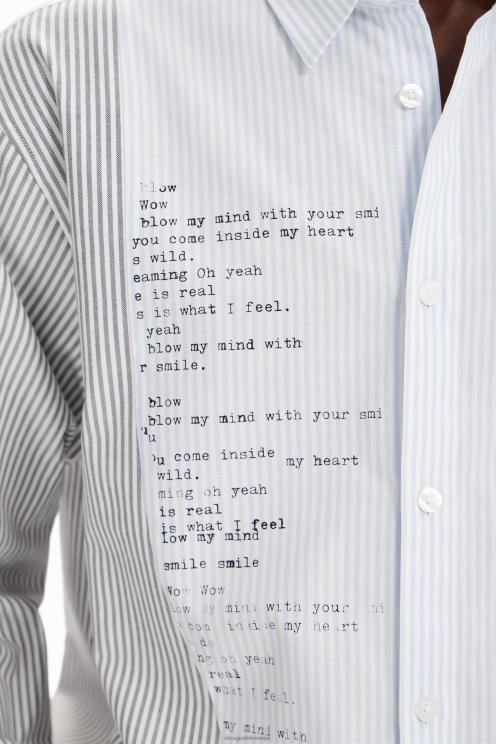 blow
Wow
blow my mind with your smi
you come inside my heart
s wild.
eaming Oh yeah
e is real
s is what I feel.
yeah
blow my mind with
r smile.
blow
blow my mind with your smi
u
u come inside my heart
wild.
ming oh yeah
is real
is what I feel
low my mind
smile smile
Wow Wow
low my mind with your
come inside my heart
ng oh yeah
real
what I feel.
my mind with